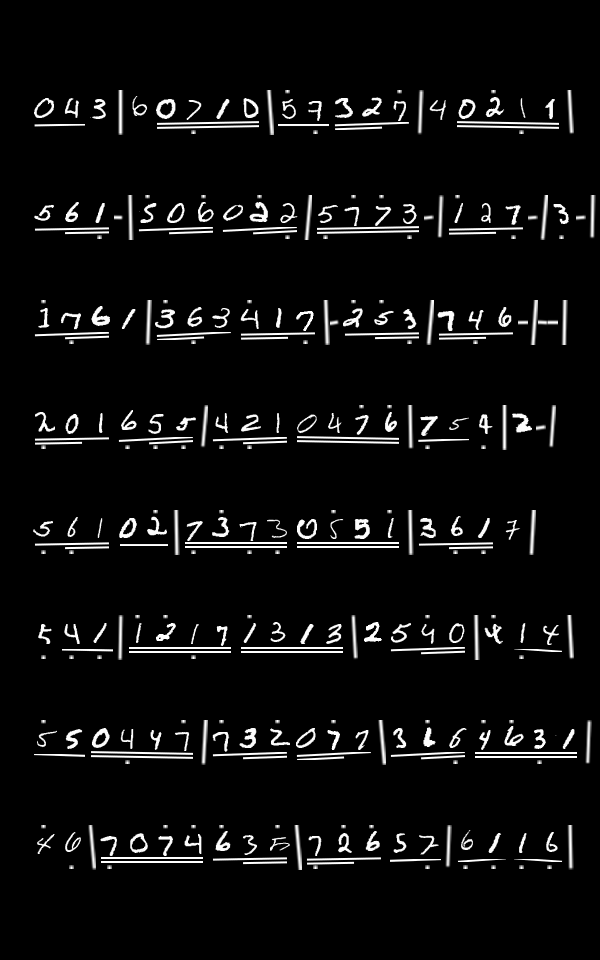 043|60710|57327|40211|
561-|506022|5773-|127-|3-|
1761|363417|-253|746-|--|
201655|4210476|754|2-|
56102|73730551|3617|
541|12171313|2540|414|
550447|732077|3164631|
46|7074635|72657|6116|